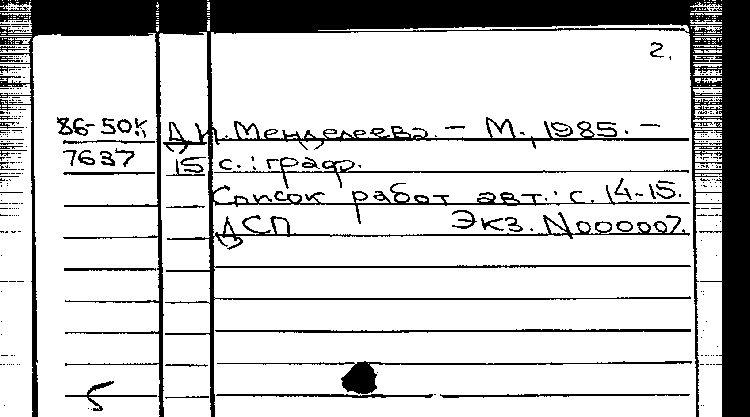 2.
86-50К Д.И. Менделеева. – М., 1985. –
7637 15 с. : граф.
Список работ авт.: с. 14-15.
ДСП Экз. N000007.
5